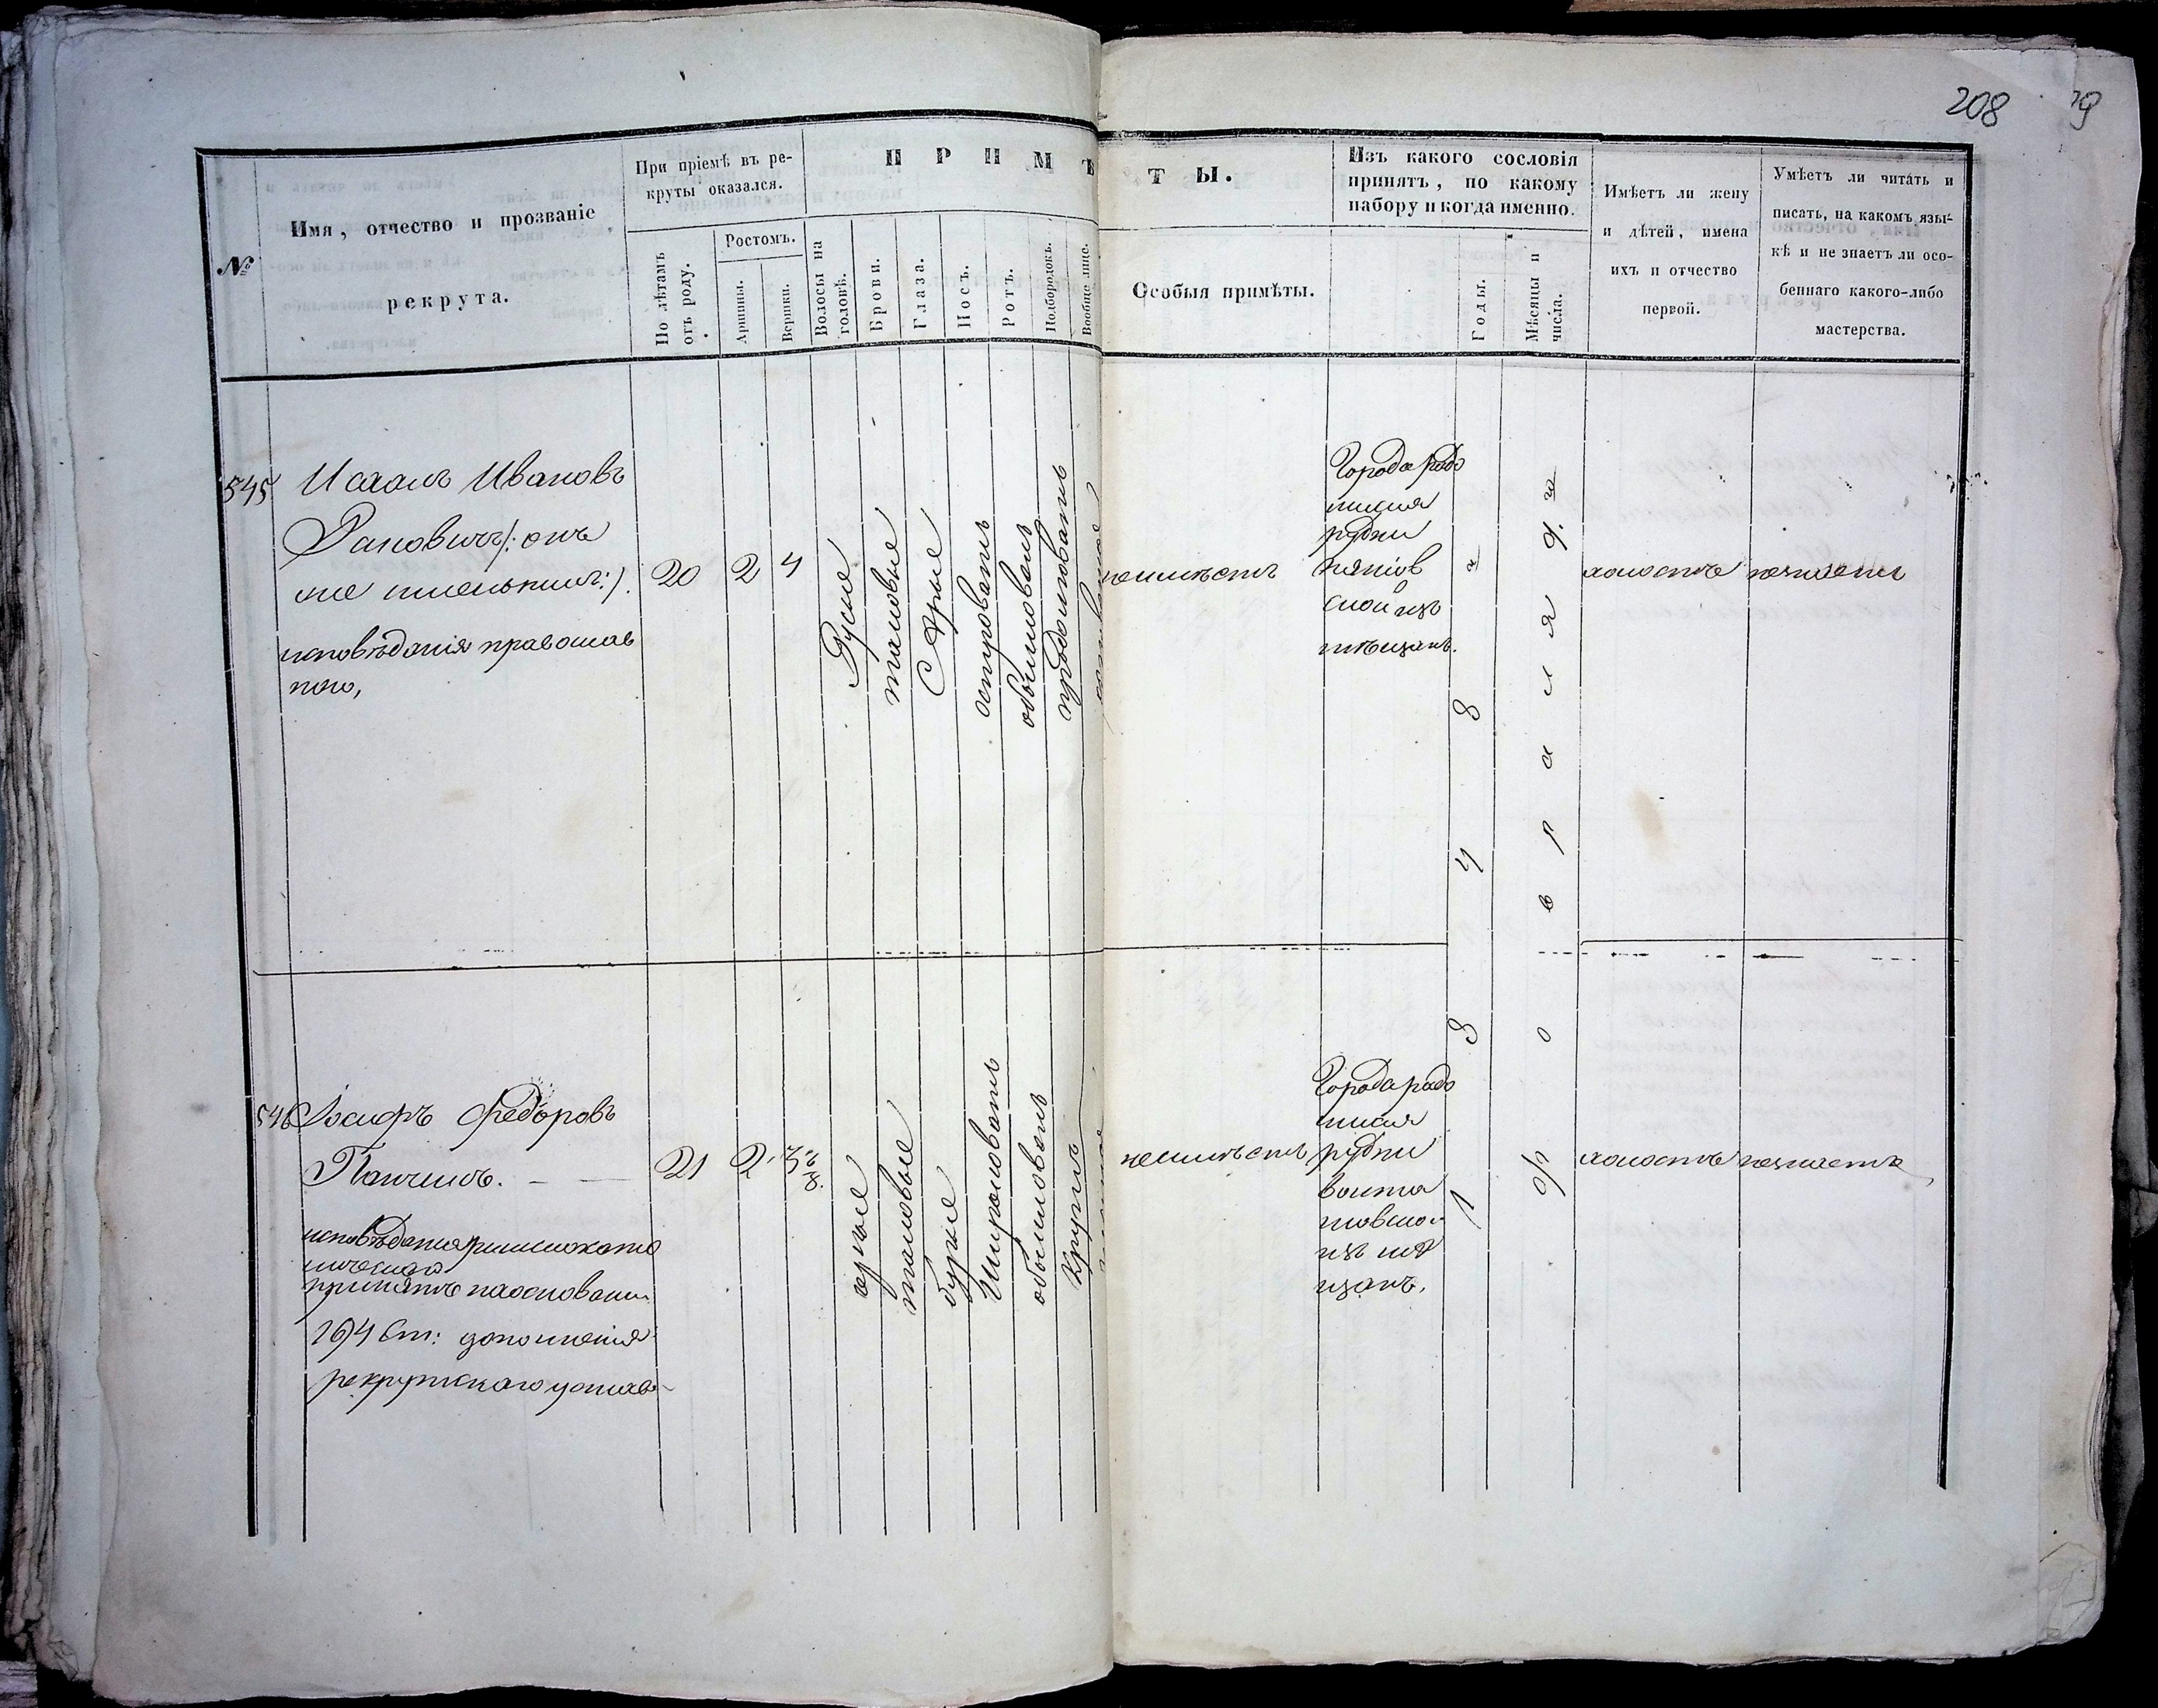 208
№
Имя, отчество и прозваніе
рекрута.
При пріемѣ въ ре-
круты оказался.
По лѣтамъ
отъ роду.
Ростомъ.
Аршины.
Вершки.
ПРИМѢТЫ.
Волосы на
головѣ.
Брови.
Глаза.
Носъ.
Ротъ.
Подбородокъ.
Вообще лице.
Особыя примѣты.
Изъ какого сословія
принятъ, по какому
набору и когда именно.
Годы.
Мѣсяцы и
числа.
Имѣетъ ли жену
и дѣтей, имена
ихъ и отчество
первой.
Умѣетъ ли читать и
писать, на какомъ язы-
кѣ и не знаетъ ли осо-
беннаго какого-либо
мастерства.
545
Ивановъ
онъ
же
исповѣданія православ
наго,
20
2
4
Русые
таковые
Сѣрые
островатъ
обыкновенъ
продолговатъ
неимѣетъ
Города Радо
мысля
рудни
изъ
мѣщанъ.
холостъ
незнаетъ
1 8 4 8
февраля 9. го
546
Іосифъ Федоровъ
исповѣданія римскокато
лическаго
принятъ наосновании
194 Ст: дополненія
рекрутскаго устава
21
2
3 6/8.
таковые
бурые
Широковатъ
обыкновенъ
Круглъ
неимѣетъ
Города Радо
мысля
рудни
изъ мѣ
щанъ.
холостъ
незнаетъ